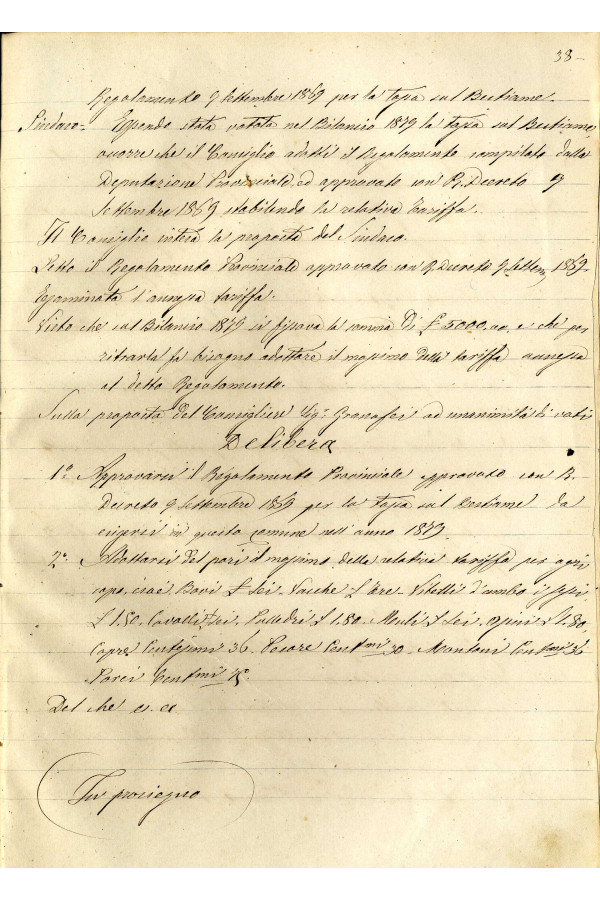 38-
Regolamento 9 Settembre 1869 per la tassa sul Bestiame.
Sindaco- Essendo stata votata nel Bilancio 1879 la tassa sul Bestiame,
occorre che il Consiglio adotti il Regolamento compilato dalla
Deputazione Provinciale, ed approvato con R. Decreto 9
Settembre 1869 stabilendo la relativa tariffa.
Il Consiglio intesa la proposta del Sindaco.
Letto il Regolamento Provinciale approvato con R. Decreto 9 Settem 1869-
Esaminata l'annessa tariffa.
Visto che sul Bilancio 1879 si fissava la somma di £ 5000.00. e che per
ritrarla fa bisogno adottare il massimo della tariffa annessa
al detto Regolamento.
Sulla proposta del Consigliere Granafei ad unanimità di voti
Delibera
1.º Approvarsi il Regolamento Provinciale approvato con R.
Decreto 9 Settembre 1869 per la tassa sul Bestiame da
esigersi in questo comune nell'anno 1879.
2.º Adottarsi del pari il massimo della relativa tariffa per ogni
capo, cioè Bovi £ Sei- Vacche £ Tre- Vitelli d'ambo i sessi
£ 1.50. Cavalli Sei. Pulledri £ 1.80. Muli £ Sei. Asini £ 1.80.
Capre Centesimi 36- Pecore Centmi 30- Montoni Centmi 36
Porci Centmi
Del che es. es